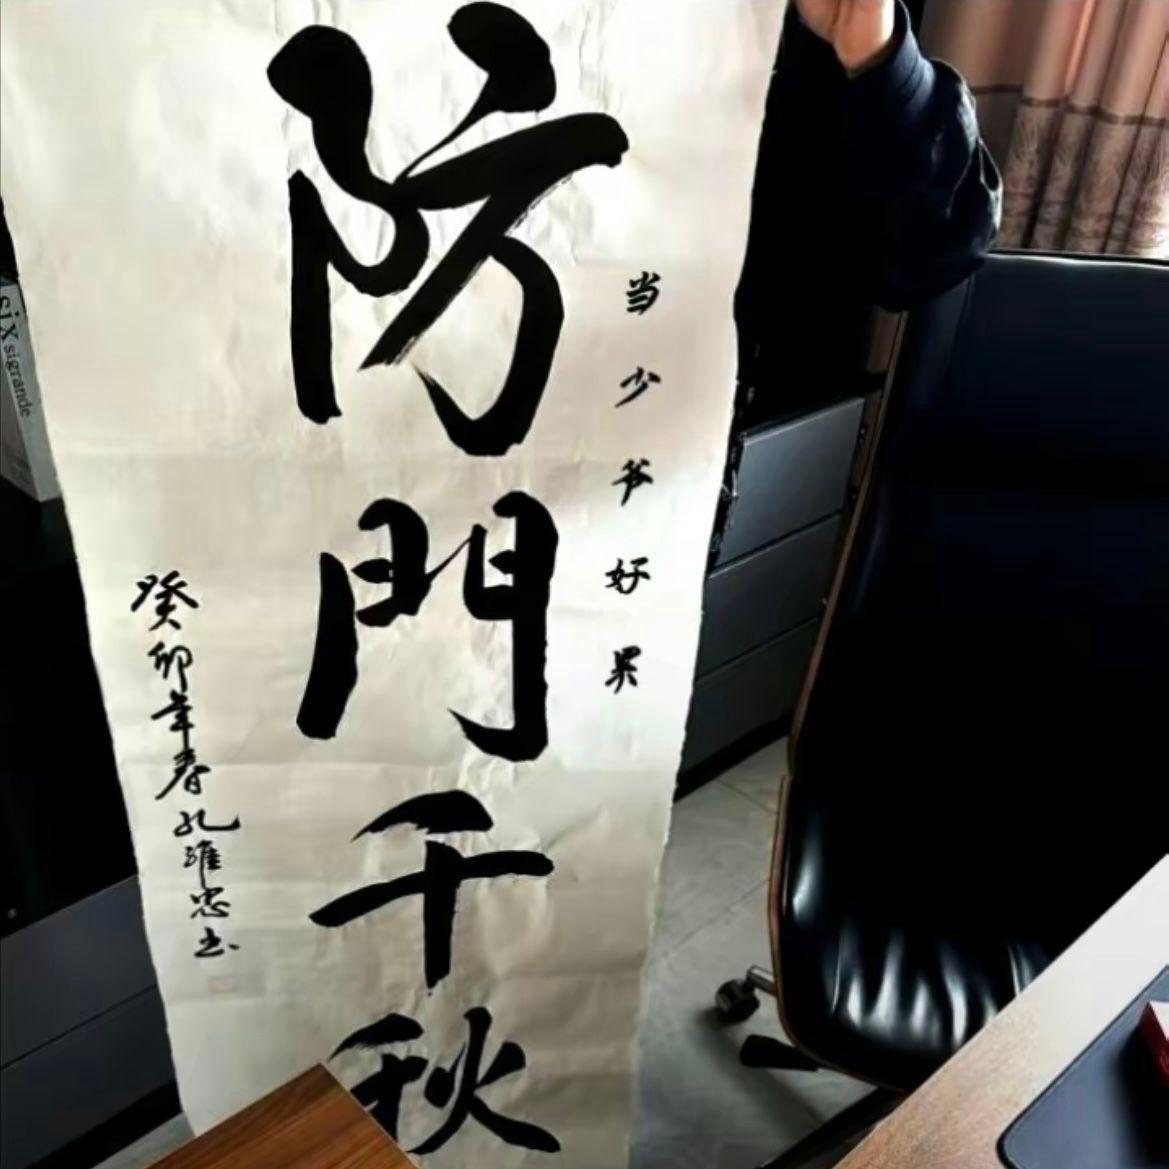 当少爷好果
防門千秋
癸卯年春孔維忠书
six sigrande